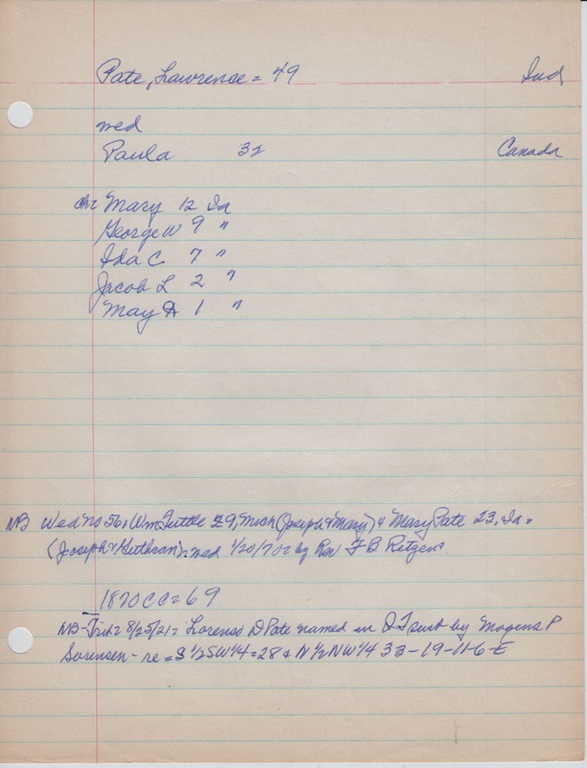 Pate, Lawrence = 49 Ind
wed
Paula 32 Canada
chr Mary 12 Ia
George W 9 "
Ida C. 7 "
Jacob L 2 "
May A 1 "
NB Wed No 56, Wm Tuttle 29, Mich (Joseph & Mary) & Mary Pate 23, Ia =
(Joseph & ) = wed 1/20/70 = by Rev F B Retgers
1870 CC = 69
NB - = 8/25/21 = Lorenso D Pate named in Q T suit by Mogens P
Sorensen - re = S 1/2 SW 1/4 = 28 & N 1/2 NW 1/4 33-19-11-6-E